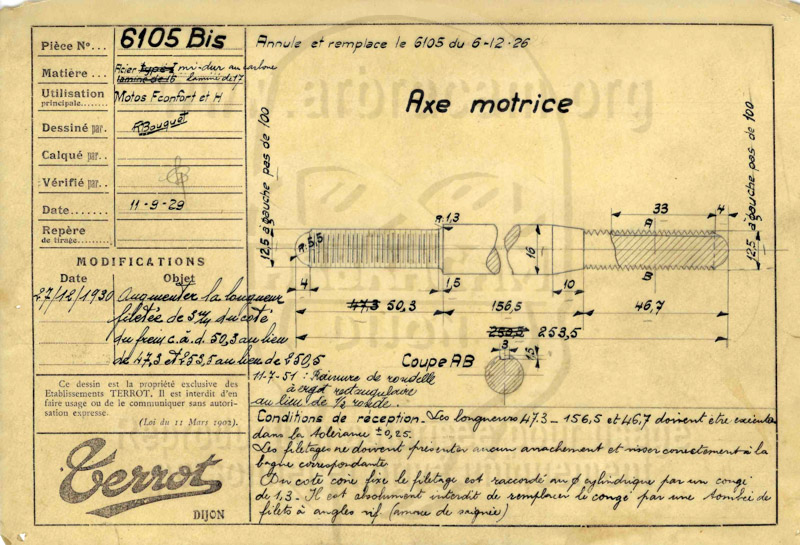 Pièce N°... 6105 Bis
Annule et remplace le 6105 du 6-12-26
Matière ... Acier type I mi-dur au carbone
laminé de 16 laminé de 17
Utilisation
principale........ Motos F confort et H
Axe motrice
Dessiné par. RBouquot
Calqué par..
Vérifié par..
Date....... 11-9-29
Repère
de tirage........
12,5 à gauche pas de 100
12,5 à gauche pas de 100
R.1,3
33
4
A
R.5,5
16
B
4
1,5
10
47,3 50,3
156,5
46,7
250,5 253,5
3
Coupe AB
1,5
MODIFICATIONS
Date Objet
27/12/1930 Augmenter la longueur
filetée de 3 m/m du coté
du frein c.à.d. 50,3 au lieu
de 47,3 et 253,5 au lieu de 250,5
11-7-51 : Rainure de rondelle
à ergot rectangulaire
au lieu de 1/2 ronde.
Ce dessin est la propriété exclusive des
Etablissements TERROT. Il est interdit d'en
faire usage ou de le communiquer sans autori-
sation expresse.
(Loi du 11 Mars 1902).
Terrot
DIJON
Conditions de réception. Les longueurs 47.3 - 156,5 et 46,7 doivent être exécutées
dans la tolérance ± 0,25.
Les filetages ne doivent présenter aucun arrachement et visser correctement à la
bague correspondante.
Du coté cone fixe le filetage est raccordé au ϕ cylindrique par un congé
de 1,3 - Il est absolument interdit de remplacer le congé par une tombée de
filets à angles vif. (amorce de saignée)